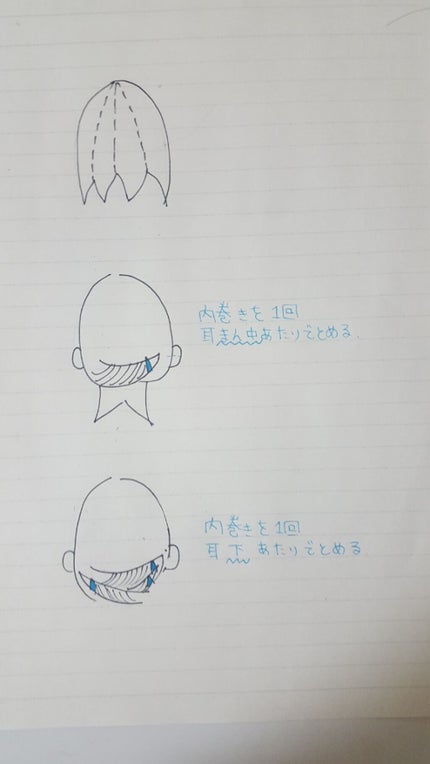 内巻きを1回
耳きん中あたりでとめる.
内巻きを1回
耳下あたりでとめる